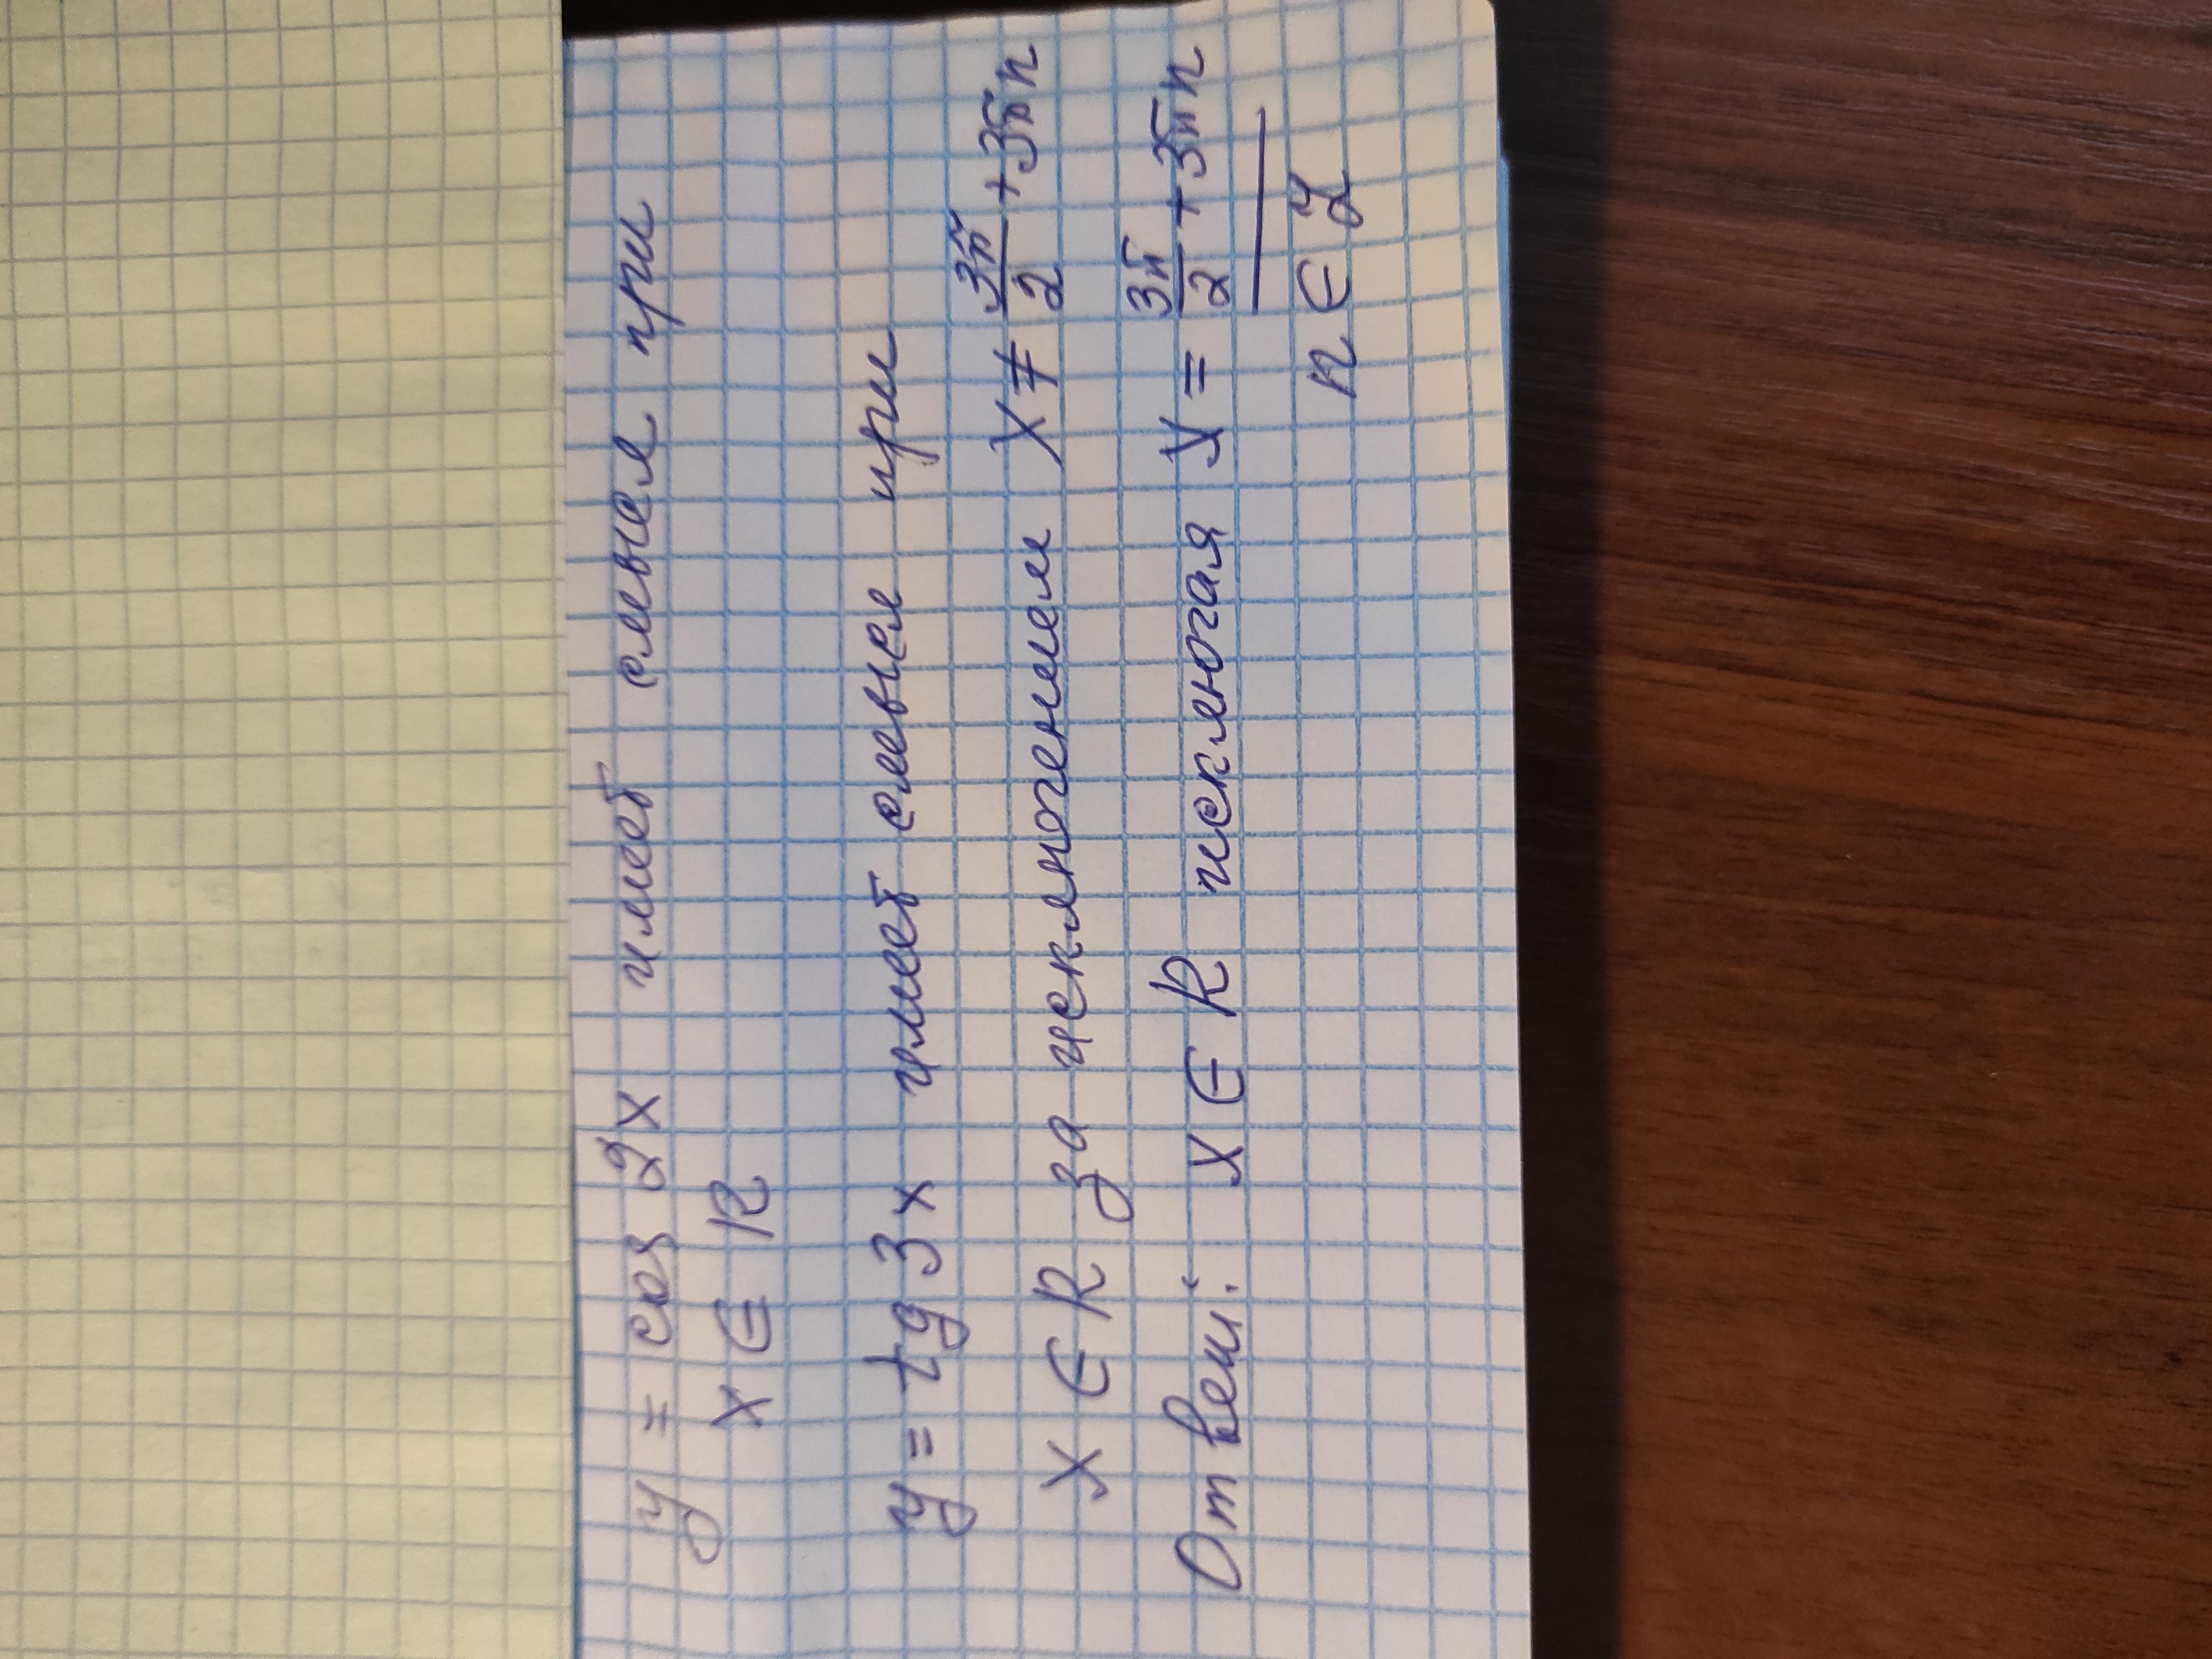 y = cos 2x имеет смысл при
x ∈ R
y = tg 3x имеет смысл при
x ∈ R за исключением x ≠ 3π/2 + 3πn
Ответ: x ∈ R исключая y = 3π/2 + 3πn
n ∈ Z